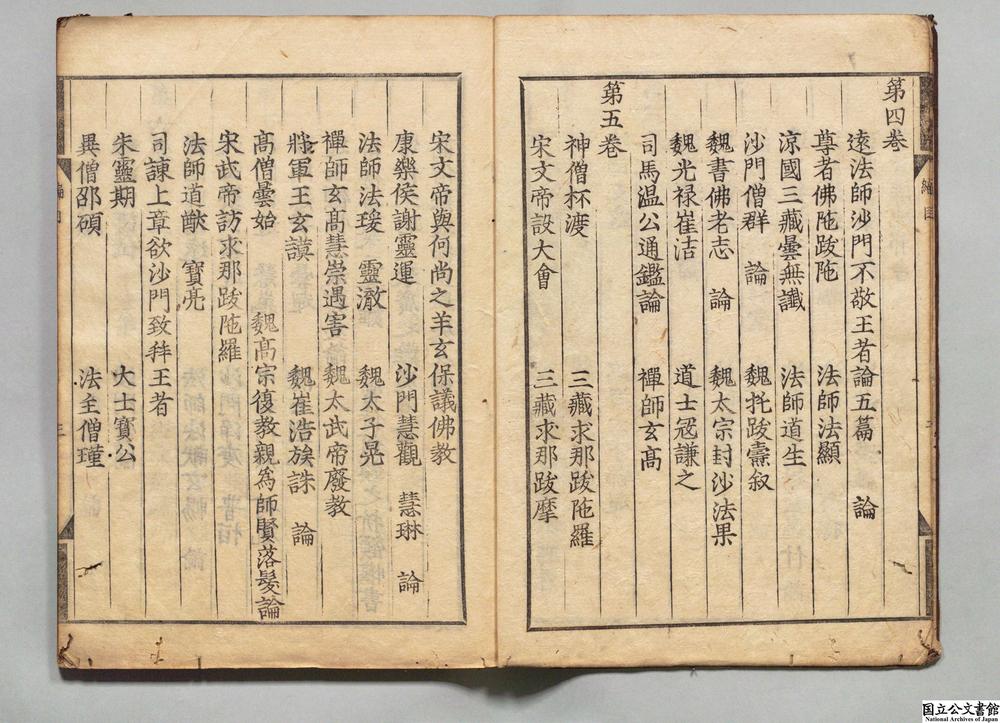 第四卷
遠法師沙門不敬王者論五篇 論
尊者佛陁跋陁 法師法顯
涼國三藏曇無讖 法師道生
沙門僧群 論 魏托跋燾叙
魏書佛老志 論 魏太宗封沙法果
魏光禄崔浩 道士冦謙之
司馬温公通鑑論 禪師玄髙
第五卷
神僧杯渡 三藏求那跋陁羅
宋文帝設大會 三藏求那跋摩
宋文帝與何尚之羊玄保議佛教
康樂侯謝靈運 沙門慧觀 慧琳 論
法師法瑗 靈澈 魏太子晃
禪師玄髙慧崇遇害 魏太武帝廢教
將軍王玄謨 魏崔浩族誅 論
髙僧曇始 魏髙宗復教親為師賢落髮論
宋武帝訪求那跋陁羅
法師道猷 寶亮
司諫上章欲沙門致拜王者
朱靈期 大士寶公
異僧邵碩 法主僧瑾
編目
三
国立公文書館
National Archives of Japan